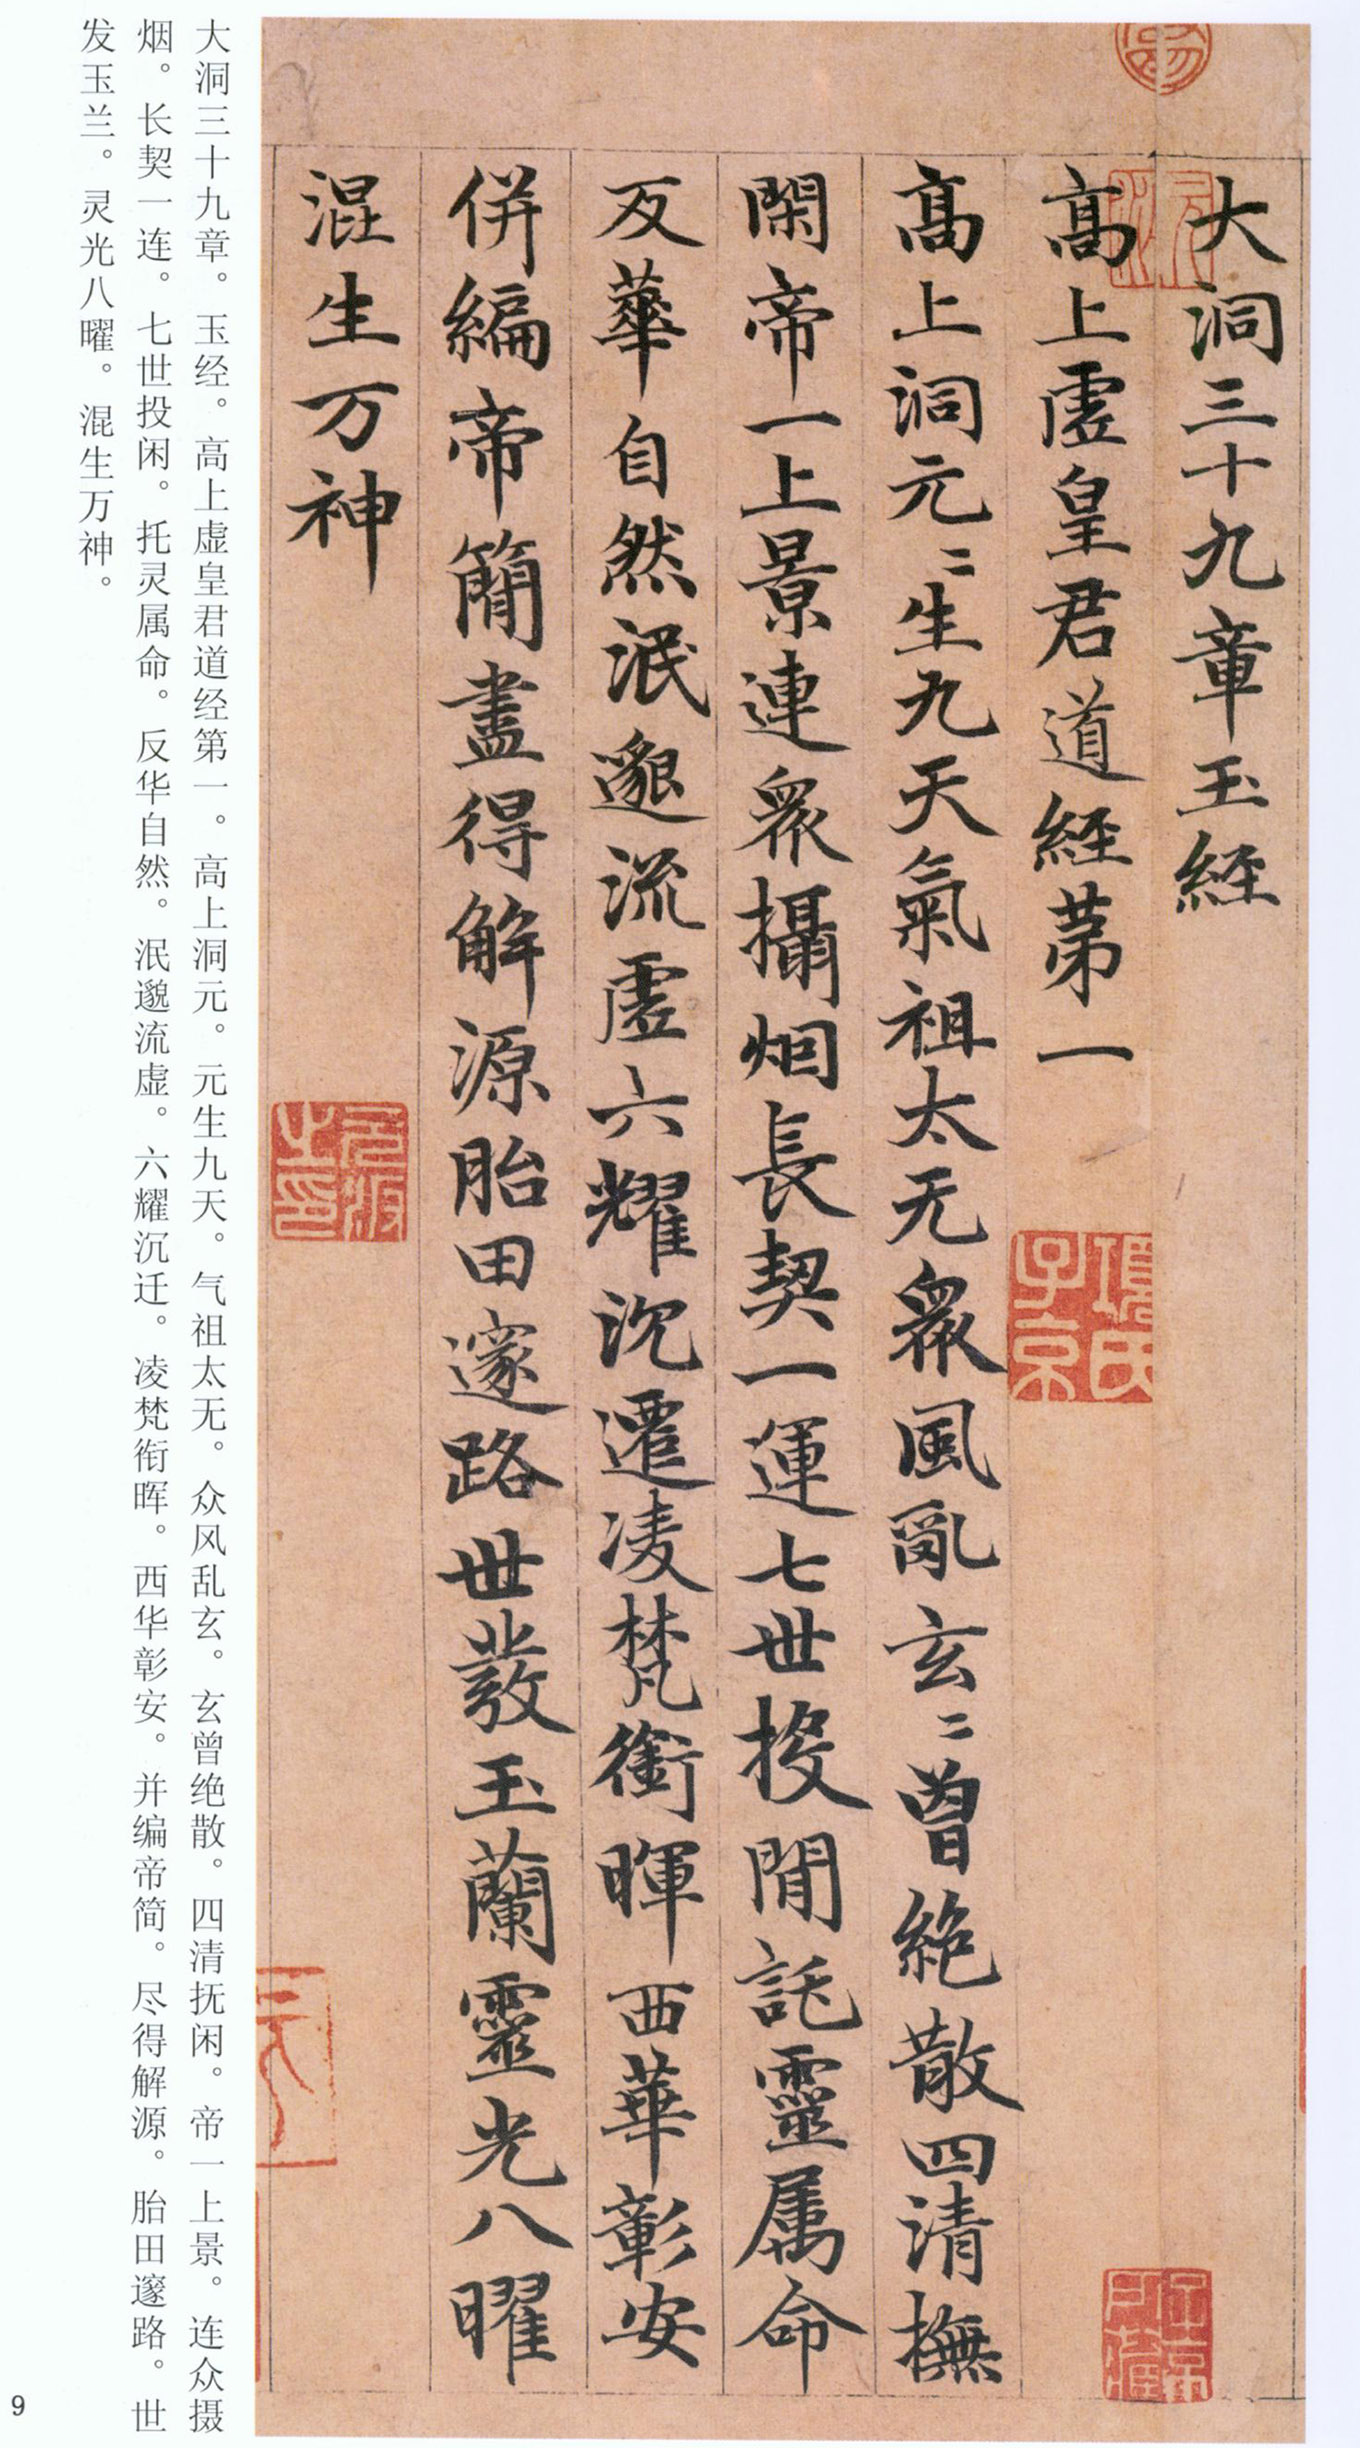 大洞三十九章玉經
高上虛皇君道經第一
高上洞元〻生九天氣祖太无衆風亂玄〻曾絶散四清撫
閑帝一上景連衆攝烟長契一運七世投閒託靈属命
反華自然泯邈流虛六耀沉遷凌梵銜暉西華彰安
併編帝簡盡得解源胎田邃路世發玉蘭靈光八曜
混生万神
項氏子京
大洞三十九章。玉经。高上虚皇君道经第一。高上洞元。元生九天。气祖太无。众风乱玄。玄曾绝散。四清抚闲。帝一上景。连众摄
烟。长契一连。七世投闲。托灵属命。反华自然。泯邈流虚。六耀沉迁。凌梵衔晖。西华彰安。并编帝简。尽得解源。胎田邃路。世
发玉兰。灵光八曜。混生万神。
9